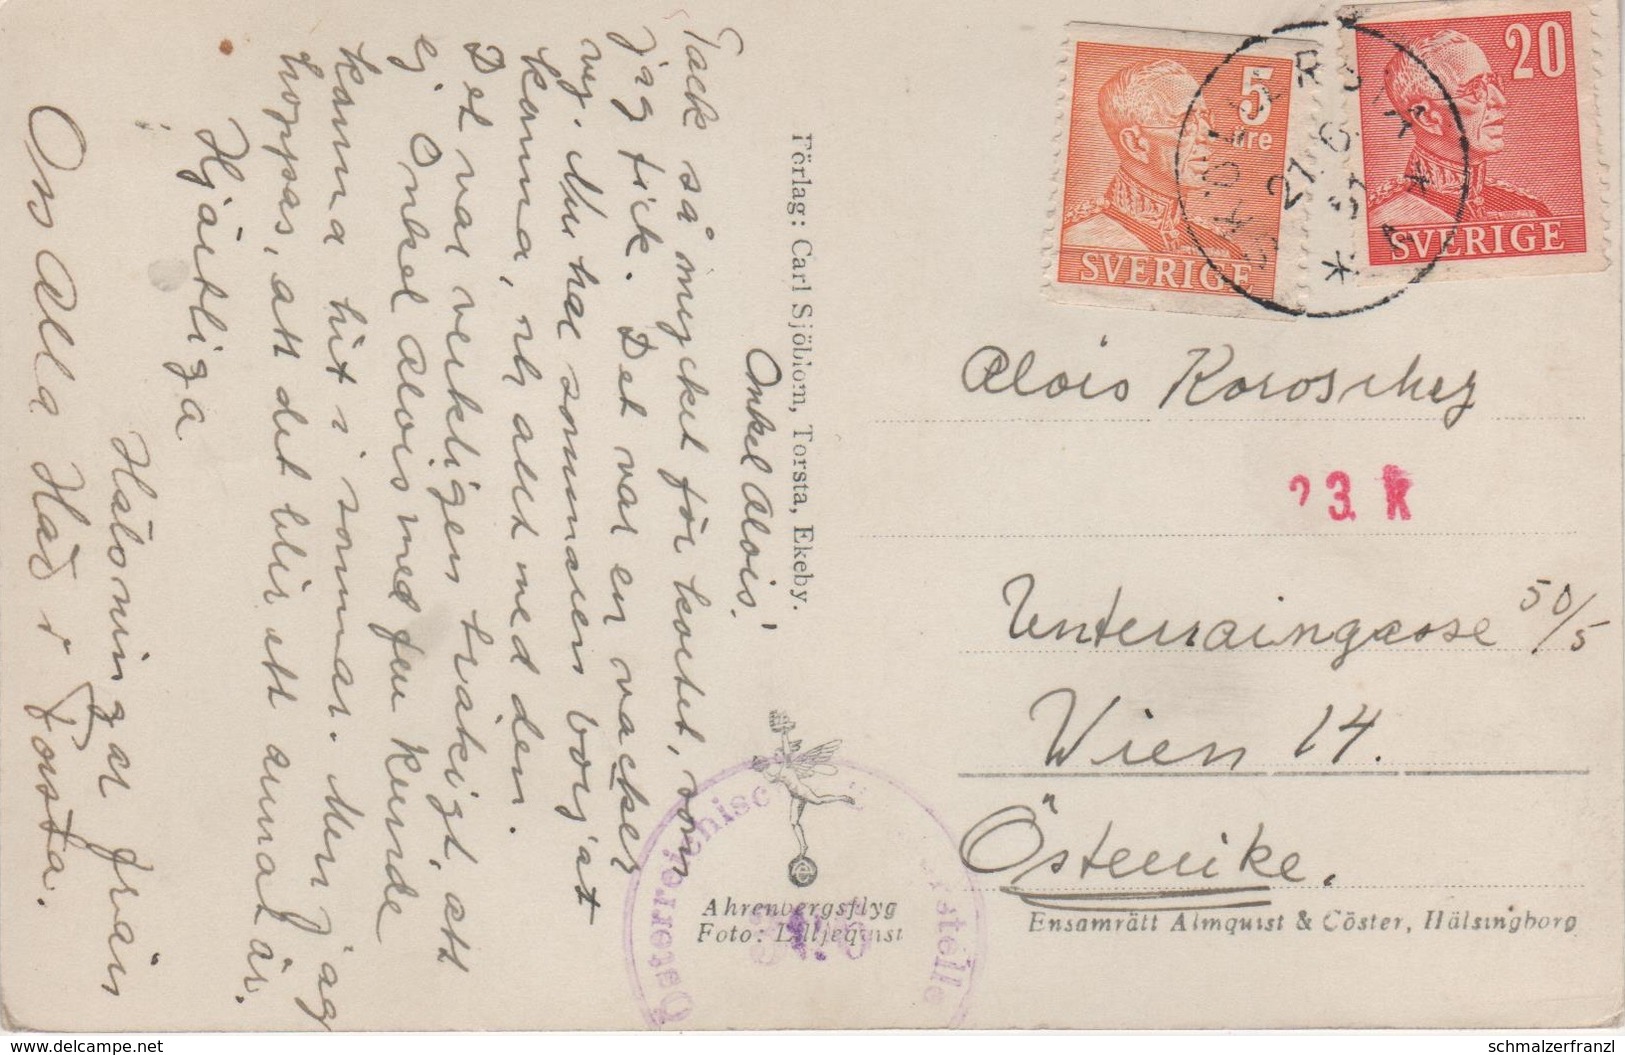 Onkel Alois!
Tack så mycket för kortet, som
jag fick. Det var en vacker
vej. Nu har sommaren börjat
komma, och allt med den.
Det var verkligen tråkigt, att
ej Onkel Alois med fru kunde
komma hit i sommar. Men jag
hoppas, att det blir ett annat år.
Hjärtliga
Hälsningar från
Oss Alla Här i Torsta.
Förlag: Carl Sjöblom, Torsta, Ekeby.
Ahrenbergsflyg
Foto: Lilljequist
5
öre
SVERIGE
20
SVERIGE
27. 6
Alois Koroschez
23. K
Unterraingasse 50/5
Wien 14.
Österrike.
Ensamrätt Almquist & Cöster, Hälsingborg
Österreichische
stelle
www.delcampe.net
schmalzerfranzl